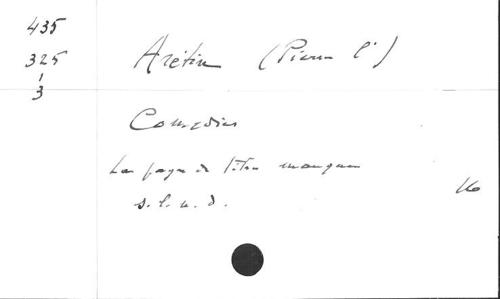 435
325
1
3
Arétin (Pierre l')
Comédies
La page de titre manque
s.l.n.d.
16